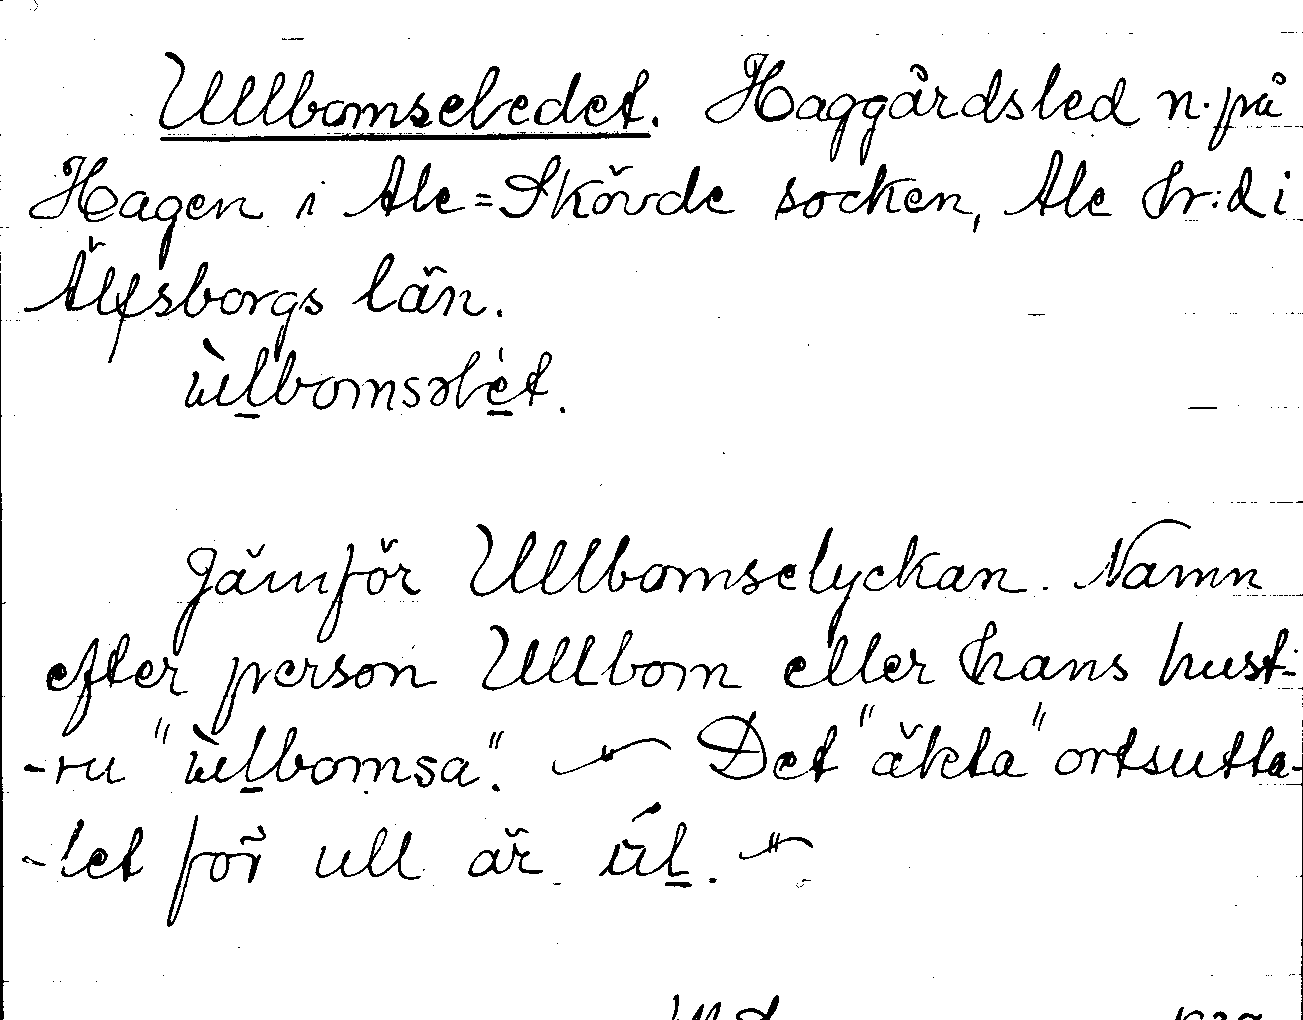 Ullbomseledet. Haggårdsled n. på
Hagen i Ale=Skövde socken, Ale hr:d i
Älfsborgs län.
ùlbomsəlét.
Jämför Ullbomselyckan. Namn
efter person Ullbom eller hans hust-
-ru "ùlbomsa". Det "äkta" ortsutta-
-let för ull är úl.